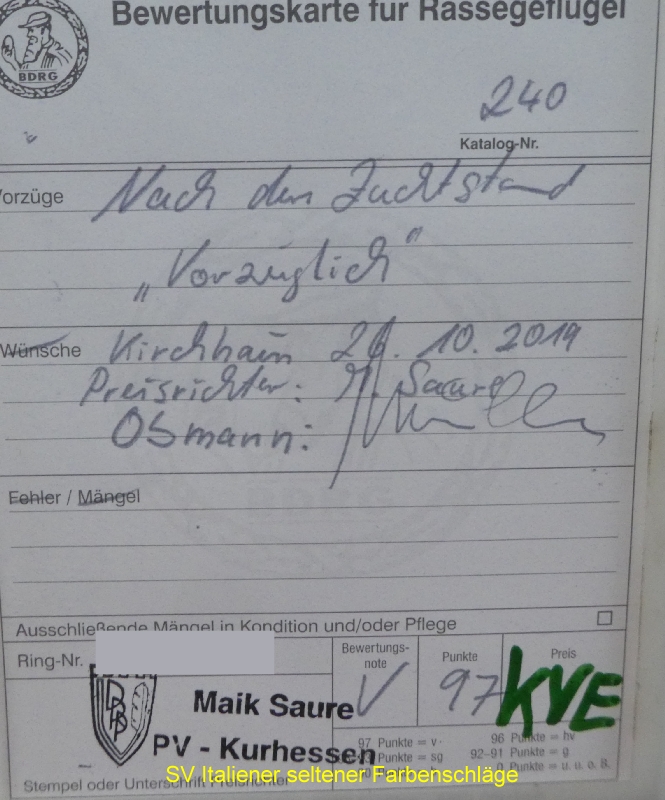 Bewertungskarte für Rassegeflügel
BDRG
240
Katalog-Nr.
Vorzüge Nach dem Zuchtstand
„Vorzüglich"
Wünsche Kirchhain 26. 10. 2019
Preisrichter: M. Saure
Obmann:
Fehler / Mängel
Ausschließende Mängel in Kondition und/oder Pflege
Ring-Nr.
Bewertungs-
note
V
Punkte
97
Preis
KVE
Maik Saure
PV - Kurhessen
97 Punkte = v
96 Punkte = hv
Punkte = sg
92-91 Punkte = g
0 Punkte = u. u. o. B.
Stempel oder Unterschrift Preisrichter
SV Italiener seltener Farbenschläge